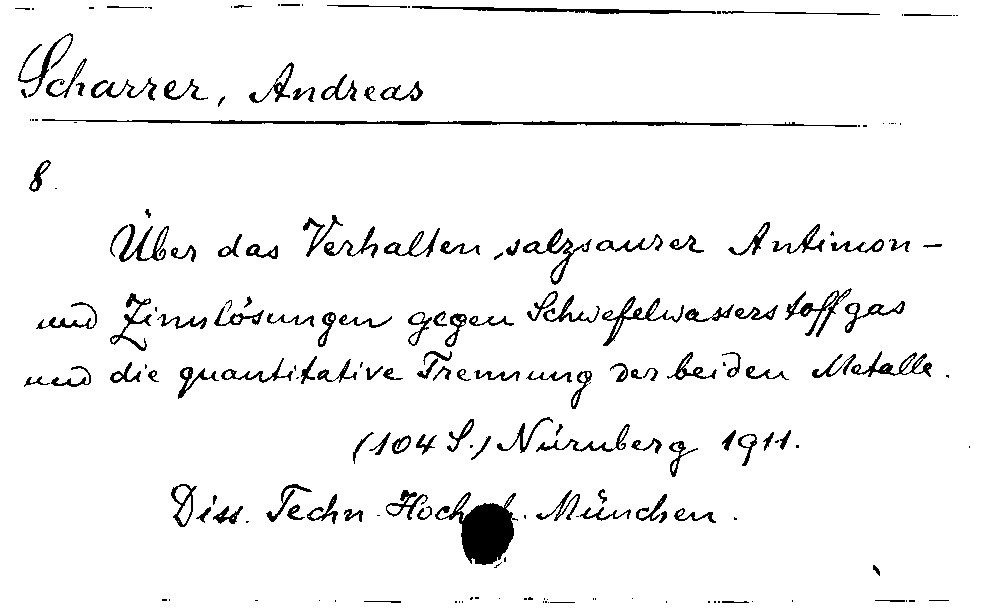 Scharrer, Andreas
8.
Über das Verhalten salzsaurer Antimon-
und Zinnlösungen gegen Schwefelwasserstoffgas
und die quantitative Trennung der beiden Metalle.
(104 S.) Nürnberg 1911.
Diss. Techn. Hochsch. München.